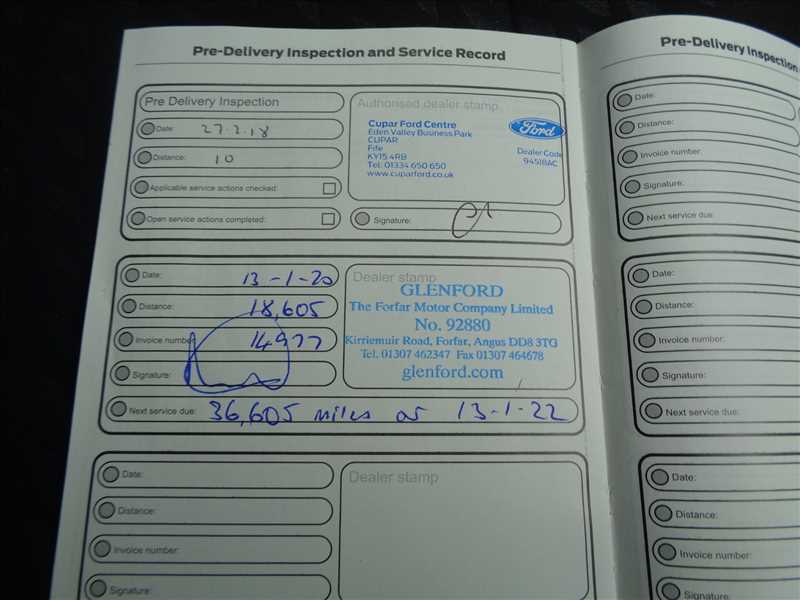 Pre-Delivery Inspection and Service Record
Pre Delivery Inspection
Date: 27.2.18
Distance: 10
Applicable service actions checked:
Open service actions completed:
Authorised dealer stamp
Cupar Ford Centre
Eden Valley Business Park
CUPAR
Fife
KY15 4RB
Tel: 01334 650 650
www.cuparford.co.uk
Ford
Dealer Code
94518AC
Signature:
Date: 13-1-20
Distance: 18,605
Invoice number: 14977
Signature:
Dealer stamp
GLENFORD
The Forfar Motor Company Limited
No. 92880
Kirriemuir Road, Forfar, Angus DD8 3TG
Tel. 01307 462347 Fax 01307 464678
glenford.com
Next service due: 36,605 miles or 13-1-22
Date:
Distance:
Invoice number:
Signature:
Dealer stamp
Pre-Delivery Inspection
Date:
Distance:
Invoice number:
Signature:
Next service due:
Date:
Distance:
Invoice number:
Signature:
Next service due:
Date:
Distance:
Invoice number:
Signature: